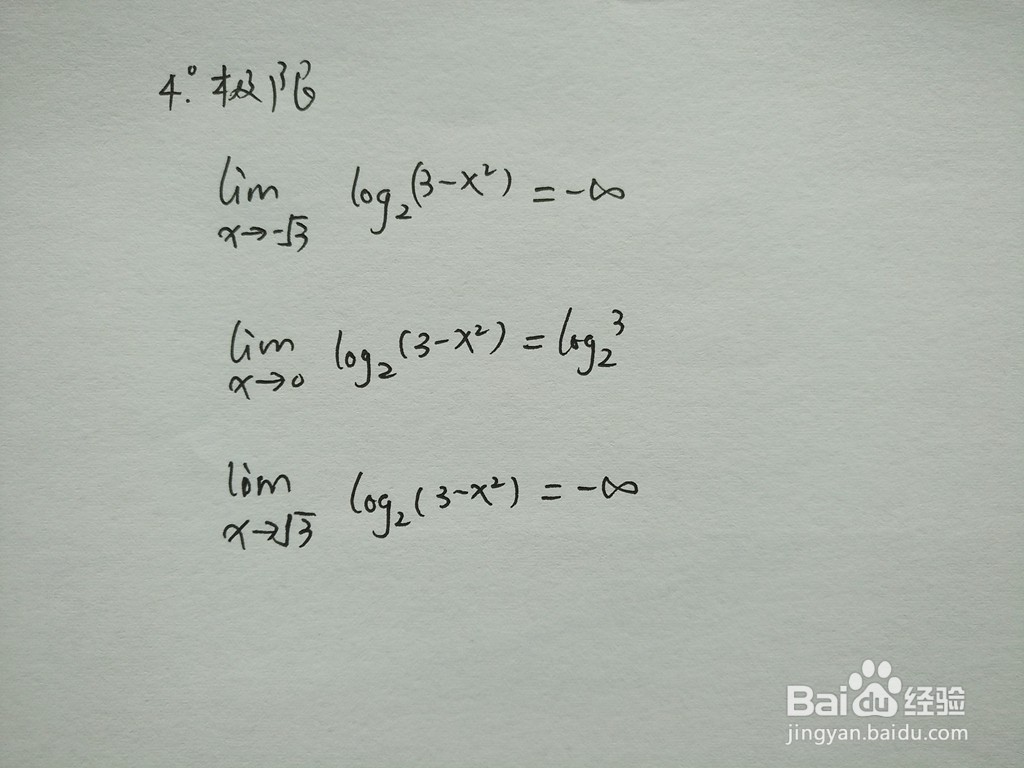 4.° 极限
lim log₂(3-x²) = -∞
x→-√3
lim log₂(3-x²) = log₂³
x→0
lim log₂(3-x²) = -∞
x→√3
Baidu经验
jingyan.baidu.com